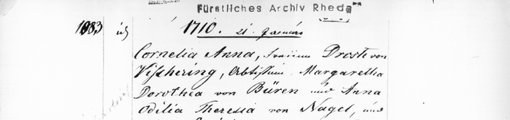 Fürstliches Archiv Rheda
1083 1710. 21 Januar
Cornelia Anna, Freiinn Droste von
Vischering, Äbtissinn, Margaretha
Dorothea von Büren und Anna
Odilia Theresia von Nagel, und